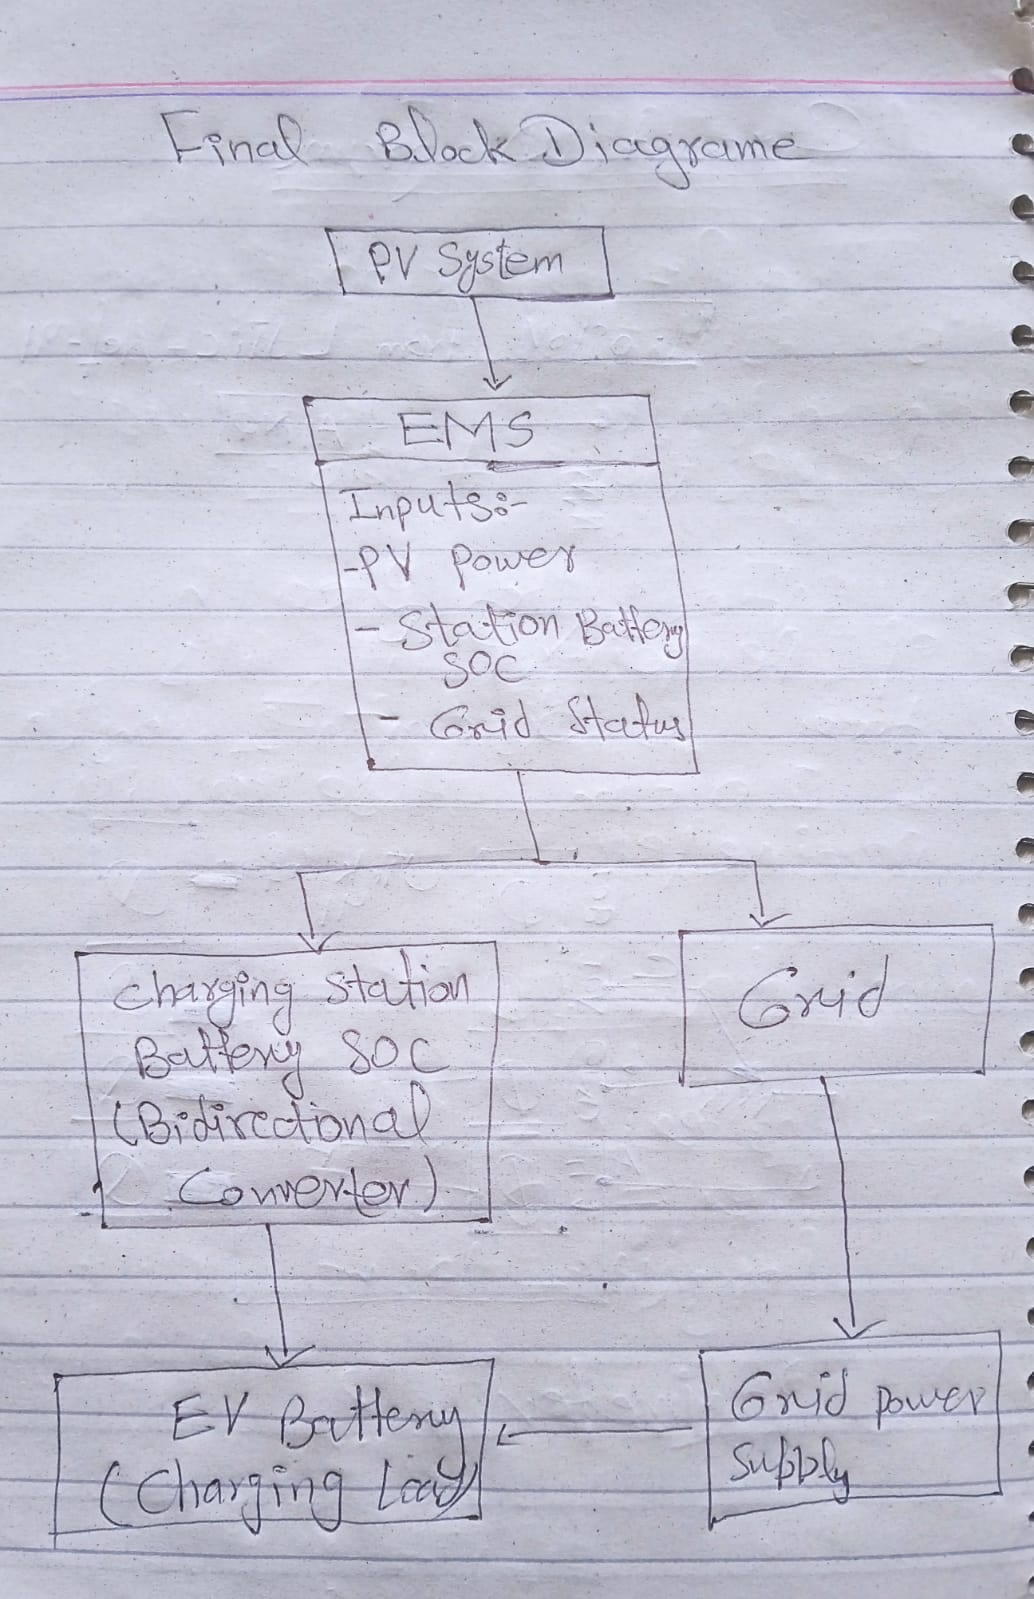 Final Block Diagrame
PV System
EMS
Inputs:-
-PV Power
- Station Battery
SOC
- Grid Status
Charging Station
Battery SOC
(Bidirectional
Converter)
Grid
EV Battery
(Charging Load)
Grid power
Supply